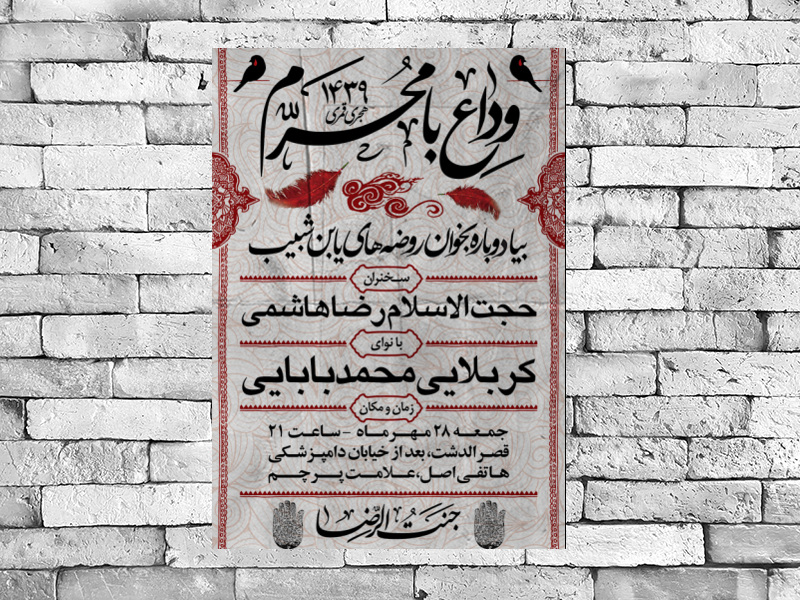 وداع با محرّم
۱۴۳۹
هجری قمری
بیا دوباره بخوان روضه‌های یابن شبیب
سخنران
حجت الاسلام رضا هاشمی
با نوای
کربلایی محمد بابایی
زمان و مکان
جمعه ۲۸ مهر ماه - ساعت ۲۱
قصرالدشت، بعد از خیابان دامپزشکی
هاتفی اصل، علامت پرچم
جنت الرضا